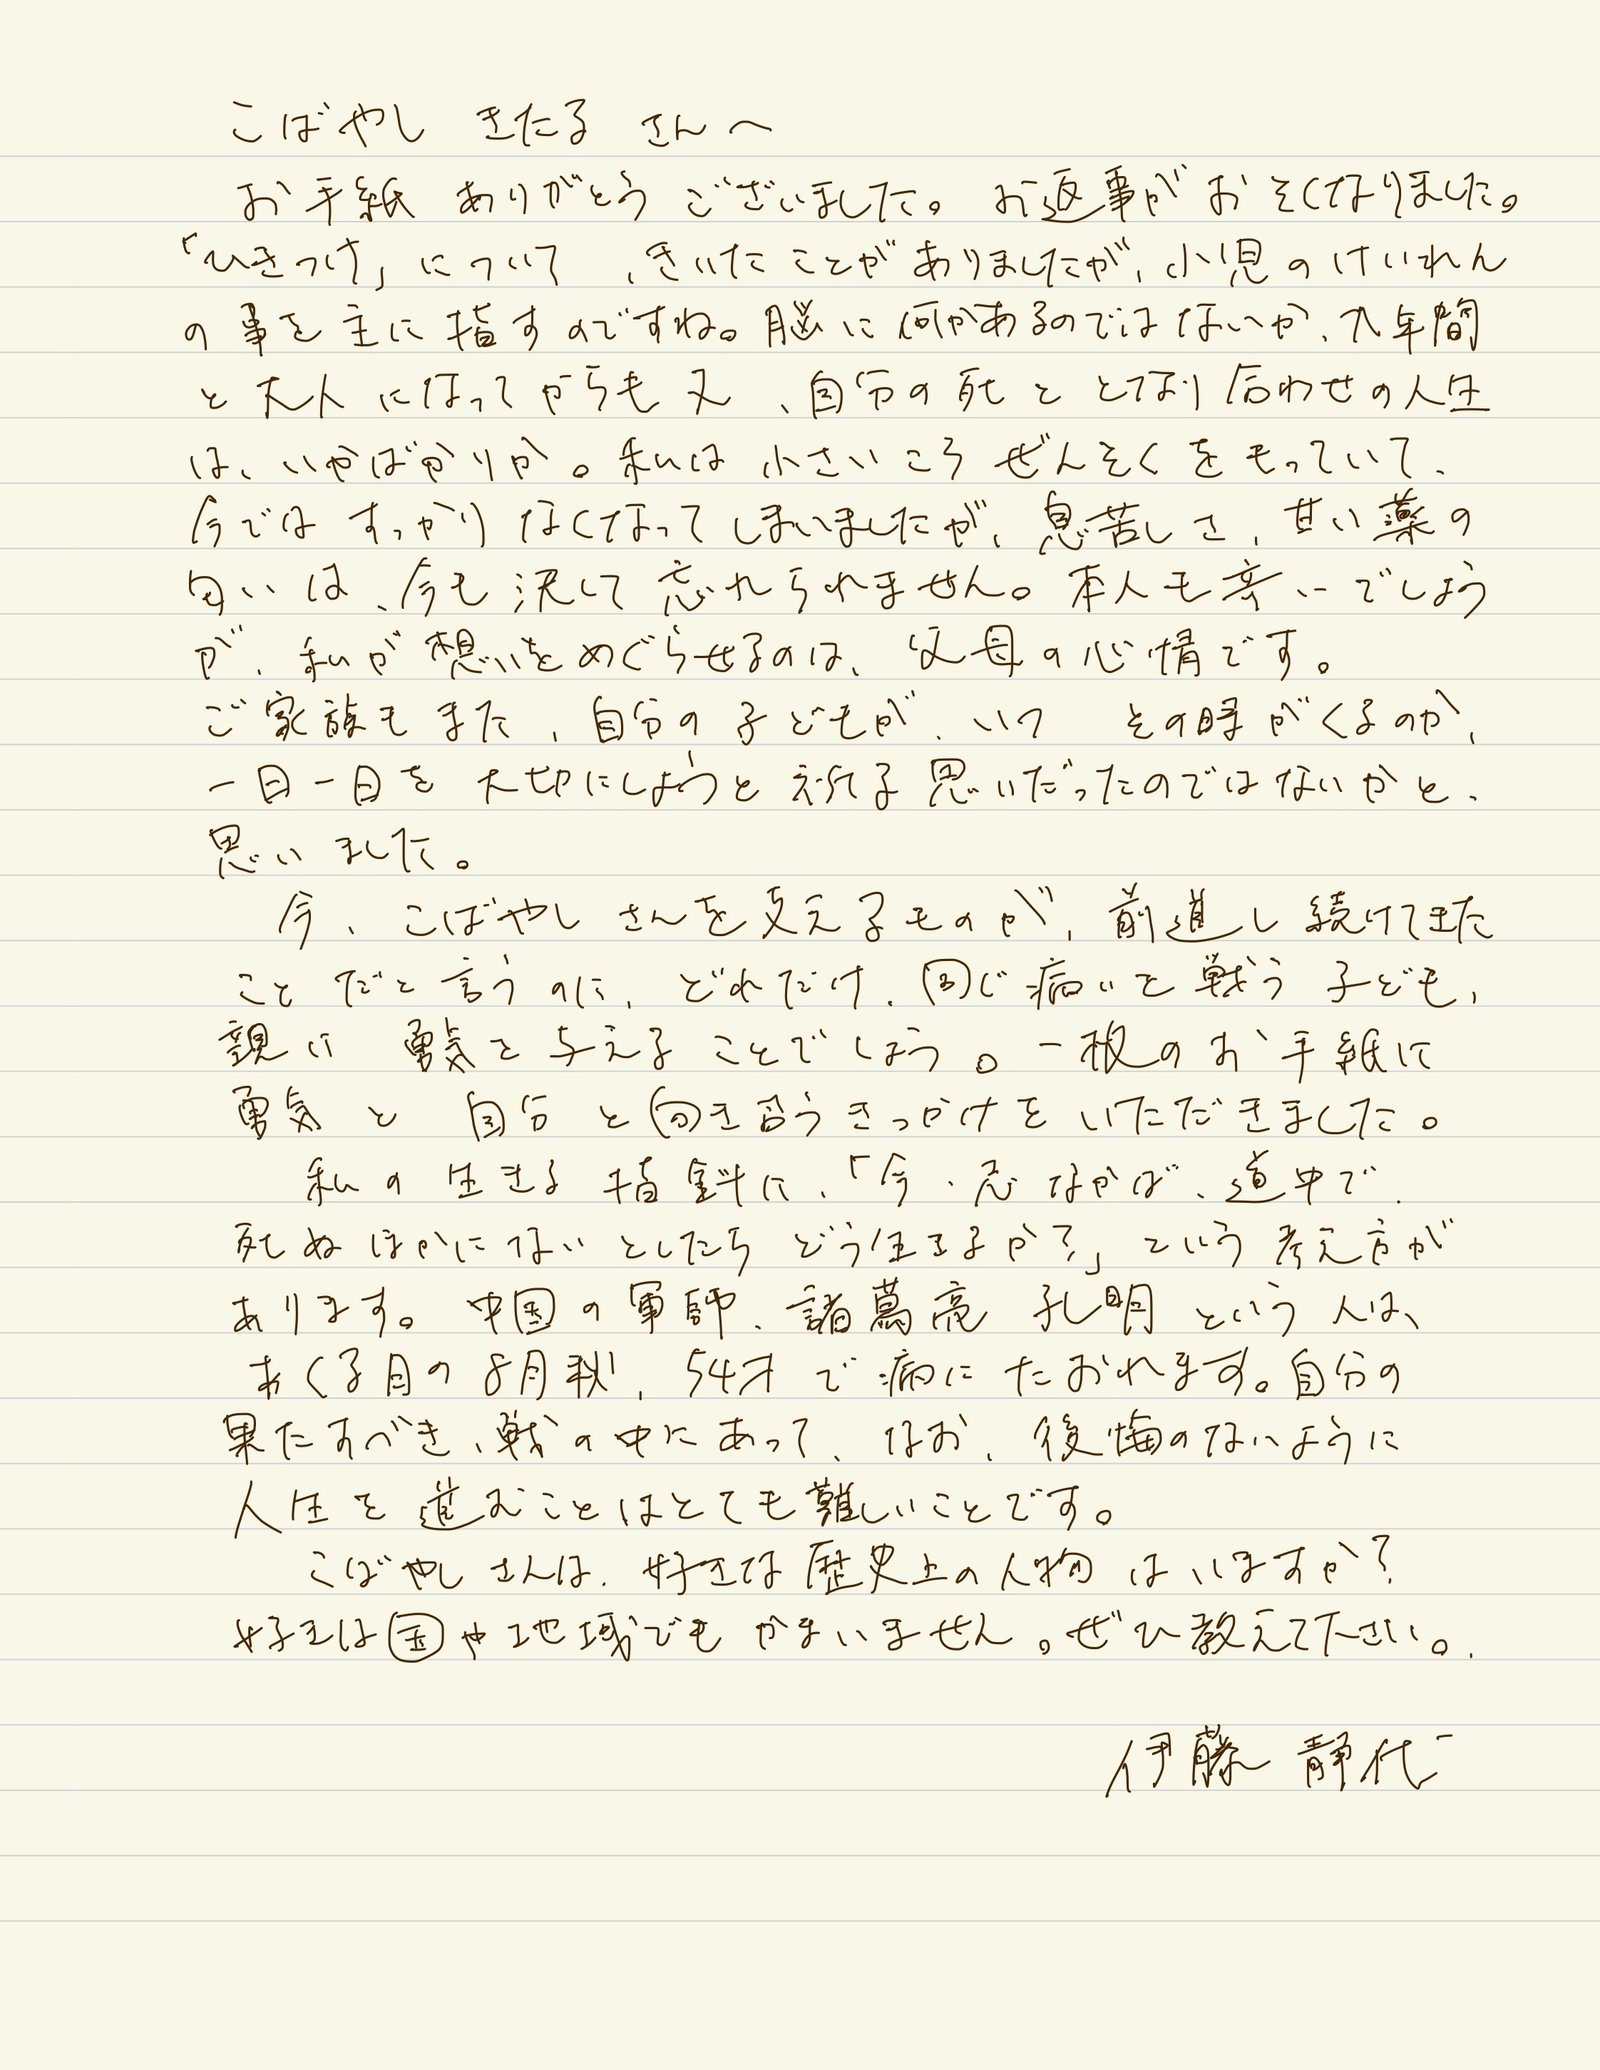 こばやし きたる さんへ
お手紙 ありがとう ございました。お返事が おそくなりました。
「ひきつけ」について、きいたことがありましたが、小児のけいれん
の事を主に指すのですね。脳に何かあるのではないか、九年間
と大人になってからも又、自分の死ととなり合わせの人生
は、いかばかりか。私は小さいころぜんそくをもっていて、
今ではすっかりなくなってしまいましたが、息苦しさ、甘い薬の
匂いは、今も決して忘れられません。本人も辛いでしょう
が、私が想いをめぐらせるのは、父母の心情です。
ご家族もまた、自分の子どもが、いつ その時がくるのか、
一日一日を大切にしようと祈る思いだったのではないかと、
思いました。
今、こばやしさんを支えるものが、前進し続けてきた
ことだと言うのに、どれだけ、同じ病いと戦う子ども、
親に勇気を与えることでしょう。一枚のお手紙に
勇気と自分と向き合うきっかけをいただきました。
私の生きる指針に、「今、志なかば、道中で、
死ぬほかにないとしたらどう生きるか?」という考え方が
あります。中国の軍師、諸葛亮 孔明という人は、
あくる日の8月秋、54才で病にたおれます。自分の
果たすべき、戦の中にあって、なお、後悔のないように
人生を進むことはとても難しいことです。
こばやしさんは、好きな歴史上の人物はいますか?
好きな国や地域でもかまいません。ぜひ教えて下さい。
伊藤 静代